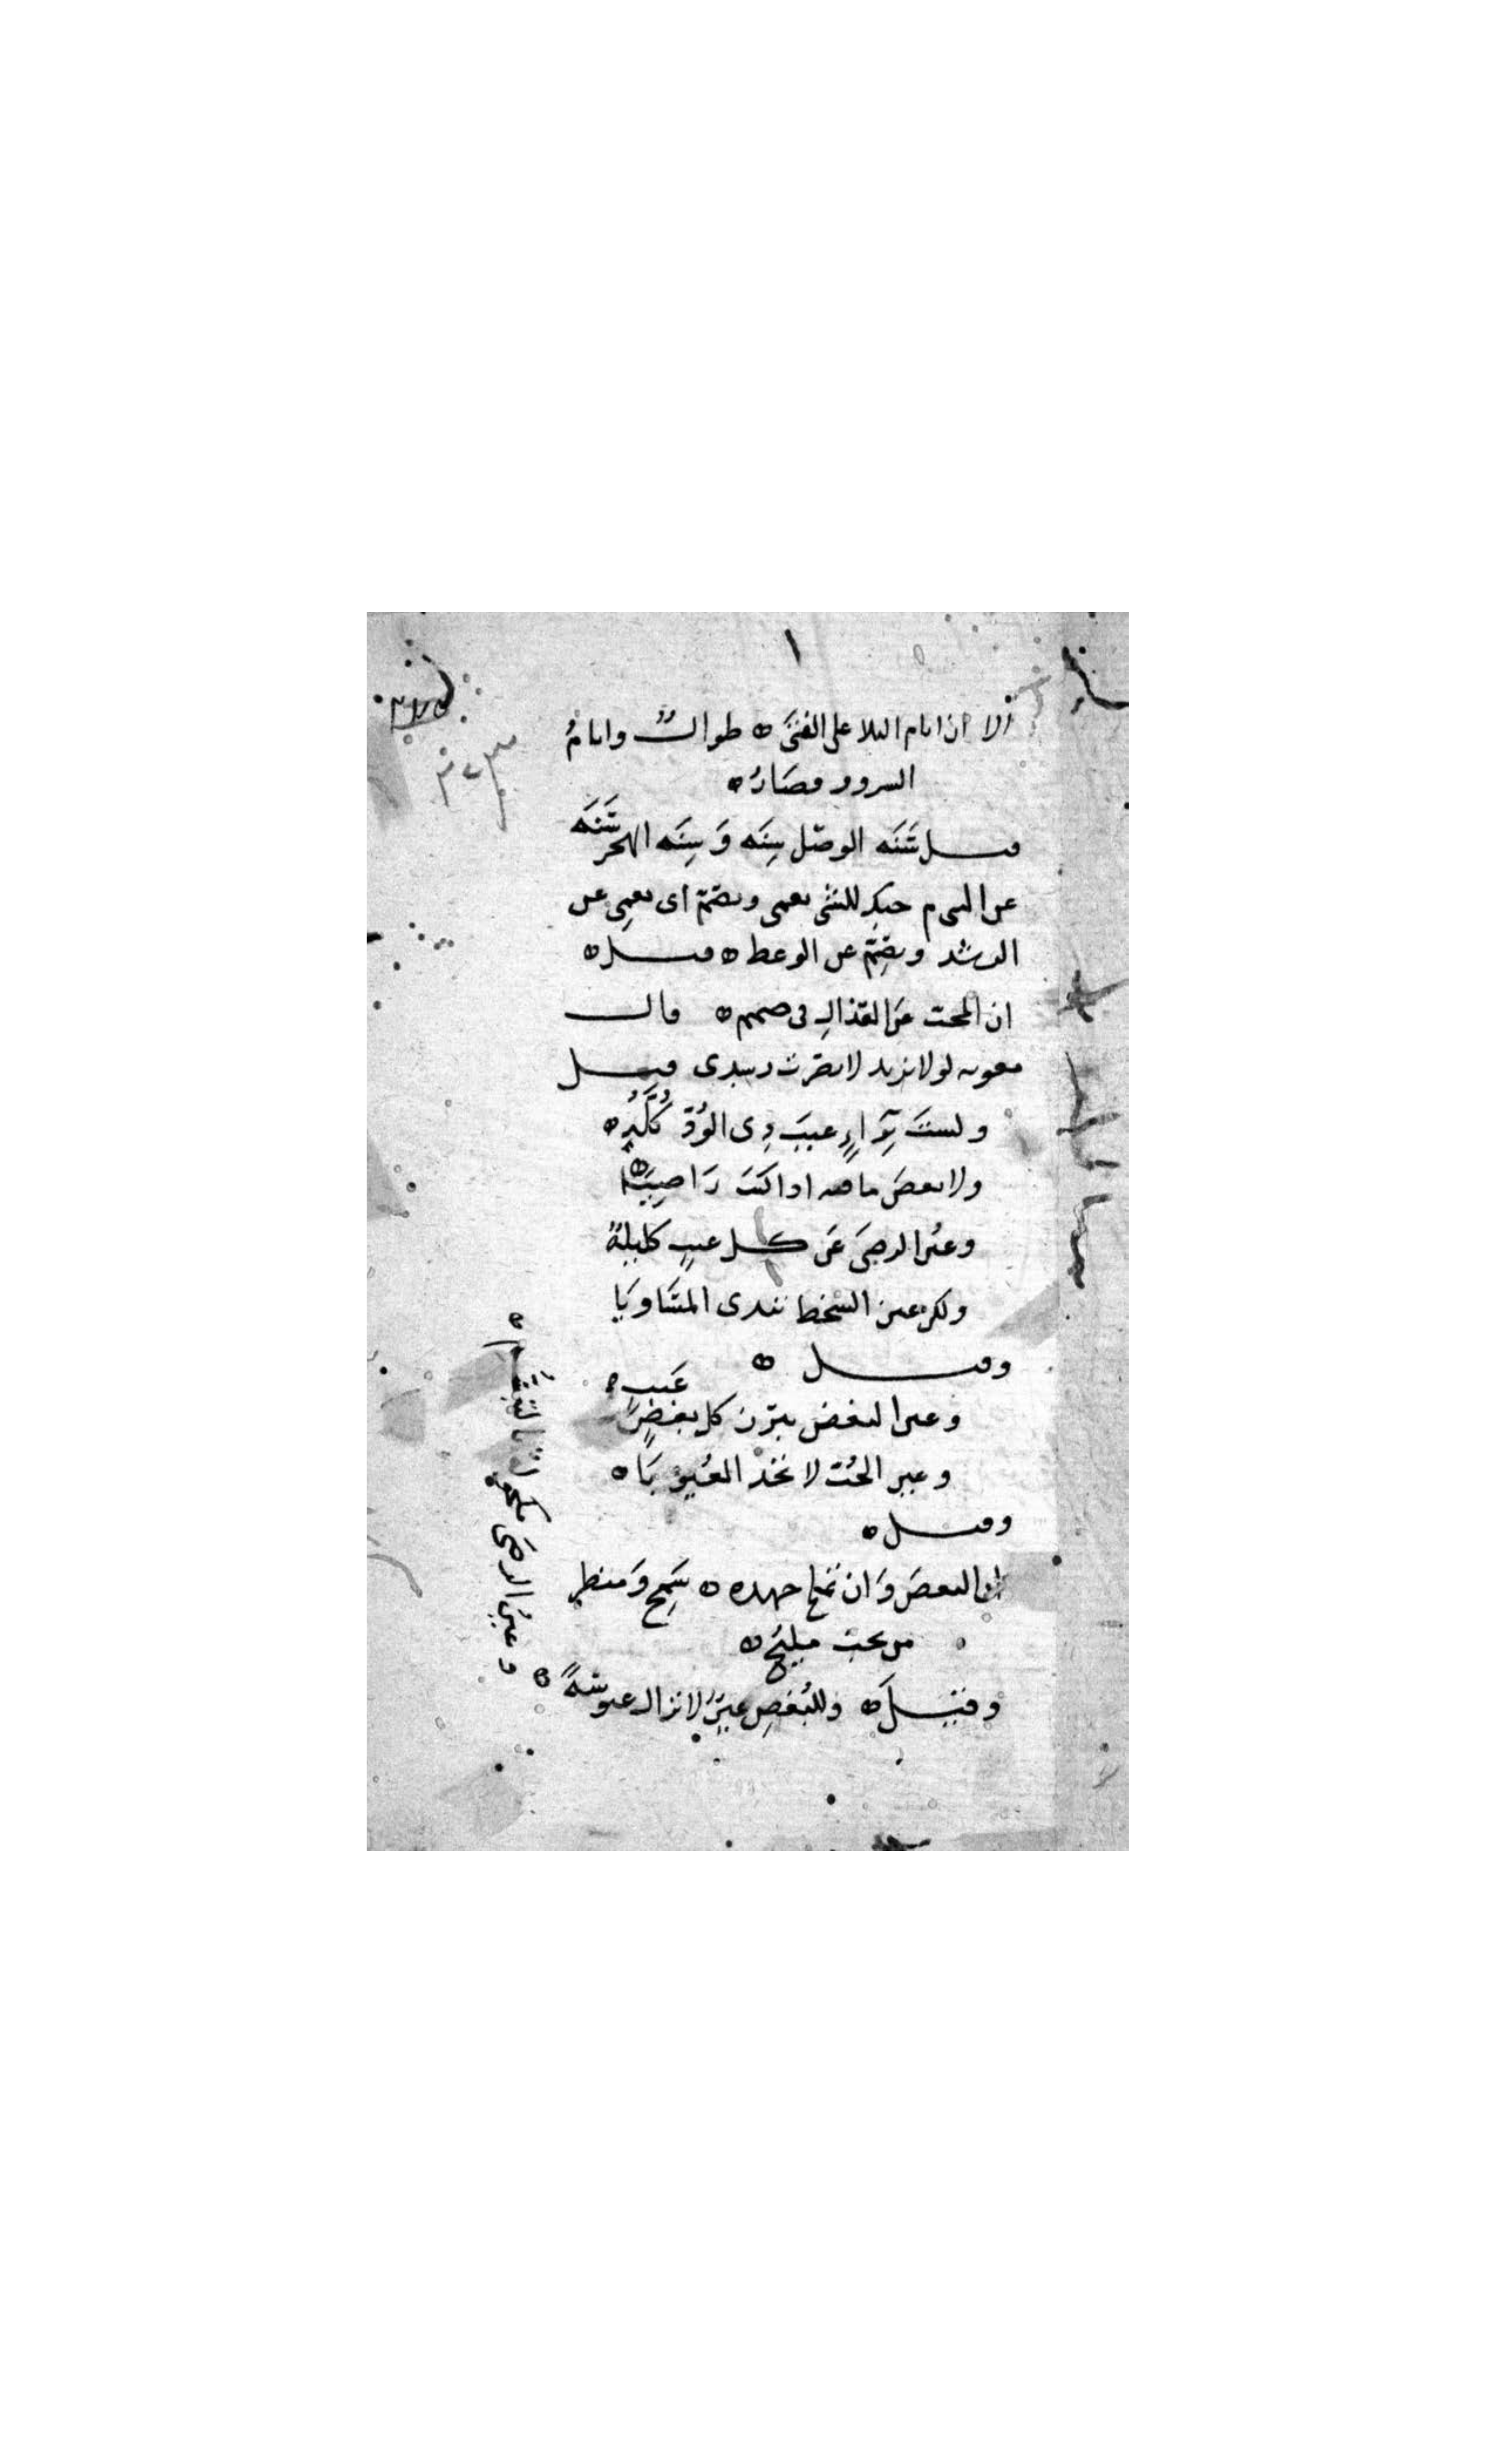 ١
ألا ان ايام البلا على الفتى ه طوال وايام
السرور قصار ه
قيل سَنَه الوصل سِنَه وَسِنَه الهجر سَنَه
عن النبى م حبك للشى يعمى ويصم اى يعمى عن
الرشد ويصم عن الوعظ ه قيل ه
ان المحب عن العذال فى صمم ه قال
معويه لولا يزيد لابصرت رشدى قيل
ولست براءٍ عيب ذى الود كله ه
ولا بعض ما فيه اذا كنت راضيا ه
وعين الرضى عن كل عيب كليلة
ولكن عين السخط تبدى المساويا
وقيل ه
وعين البغض تبرز كل عيب ه
وعين الحب لا تجد العيوبا ه
وقيل ه
البغض وان تملح جهده ه سمج ومنظر
من يحب مليح ه
وقيل ه وللبغض عين لا تزال عبوسة ه
وعين الرضى